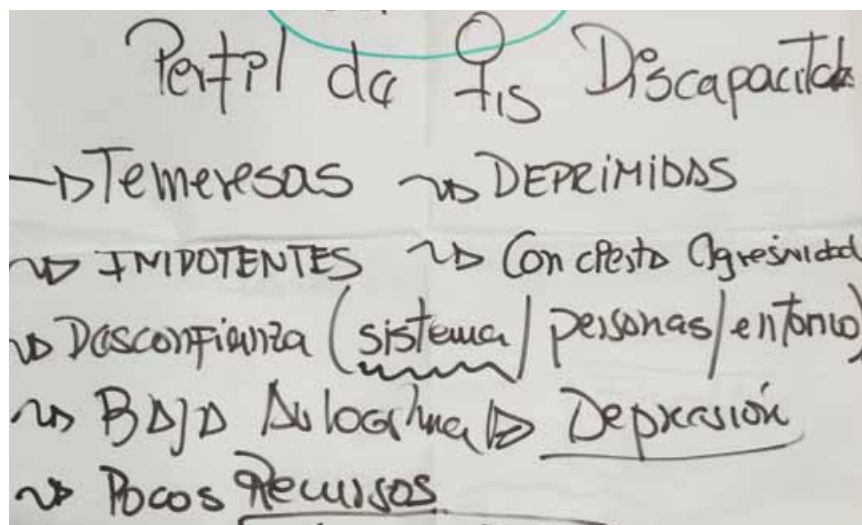 Perfil de ♀is Discapacitada
→ Temeresas ~> DEPRIMIDAS
~> IMPOTENTES ~> Con cierta Agresividad
~> Desconfianza (sistema/personas/entorno)
~> BAJA Autoestima ▷ Depresión
~> Pocos Recursos